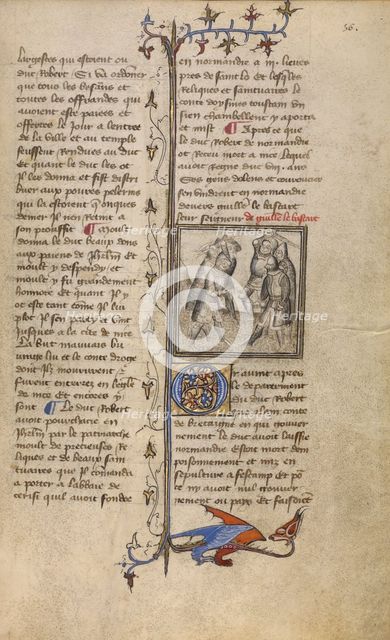 56.
largesses qui estoient ou
duc Robert Si va ordoner
que tous les besans et
toutes les offrandes qui
avoient este parees et
offertes le Jour a lentree
de la ville et au temple
feussent Rendues au duc
Et quant le duc les ot
Il les donna et fist distri
buer aup poures pelerins
qui la estoient quonques
denier Il nen Retint a
son prouffit Moult
donna le duc beaup dons
aup parens de Jherlm et
moult y despendi et
moult y fu grandement
honnore Et quant Il y
ot este tant come Il lui
plot Il sen party et vint
Jusques a la cite de nice
La but mauvais bu
vrage lui et le conte droge
dont Ilz moururent
furent enterrez en leglise
de nice et encores y
sont Le duc Robert
avoit pourchacie en
Jherlm par le patriarche
moult de precieuses Re
liques et de beaup sain
tuaires que Il commanda
a porter a labbaie de
cerisi quil avoit fondee
en normandie a iii lieues
pres de saint lo Et lesqles
Reliques et saintuaires le
conte doysmes toustain
sien chambellent y aporta
et mist Apres ce que
le duc Robert de normandie
ot Receu mort a nice
avoit Regne duc
Ses gens dolens et couroucies
sen vindrent en normandie
devers guille le bastart
leur seigneur de guille le bastart
Or avint apres
le departement
du duc Robert
le conte
de bretaigne en qui gouver
nement le duc avoit laissie
normandie Estoit mort den
poisonnement et mis en
sepulture a fescamp Et po
ce ny avoit nul gouver
nement ou pais Et faisoient
heritage Images
Heritage